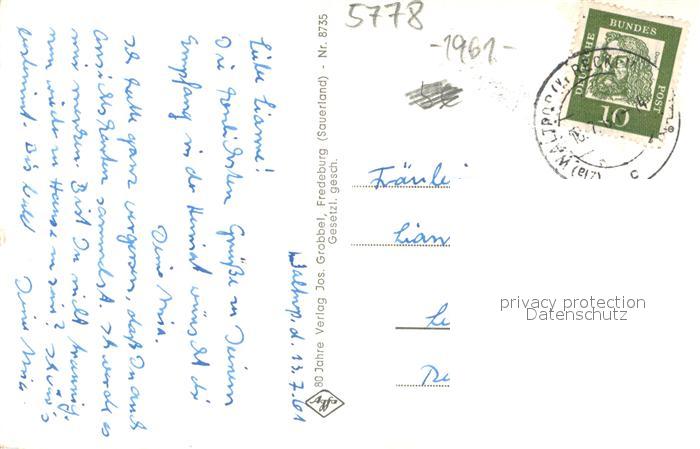 Waltrop, d. 13.7.61
Liebe Lianne!
Die herzlichsten Grüße zu Deinem
Empfang in der Heimat wünscht dir
Deine Mia.
Ich hatte ganz vergessen, daß Du auch
Ansichtskarten sammelst. Ich werde es
mir merken. Bist Du nicht traurig,
nun wieder zu Hause zu sein?
bestimmt. Bis bald Deine Mia.
80 Jahre Verlag Jos. Grobbel, Fredeburg (Sauerland) - Nr. 8735
Gesetzl. gesch.
Agfa
5778
-1961-
DEUTSCHE BUNDESPOST
10
WALTROP (Kr. RECKL
(21a)
c
Fräulei
Lian
privacy protection
Datenschutz